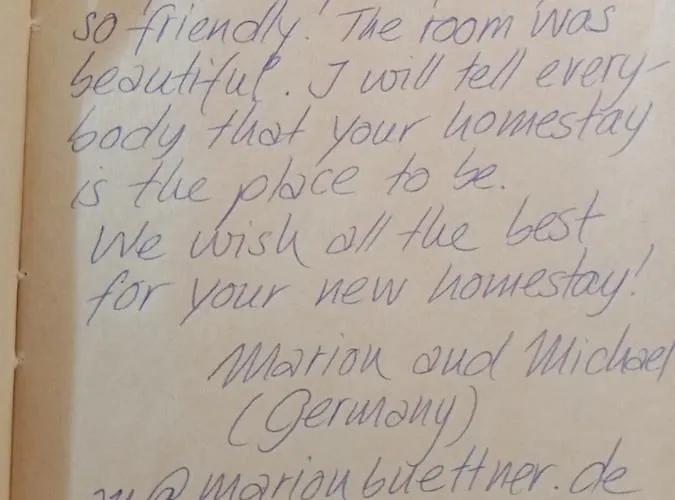 so friendly! The room was
beautiful. I will tell every-
body that your homestay
is the place to be.
We wish all the best
for your new homestay!
Marion and Michael
(Germany)
@marionbuettner.de